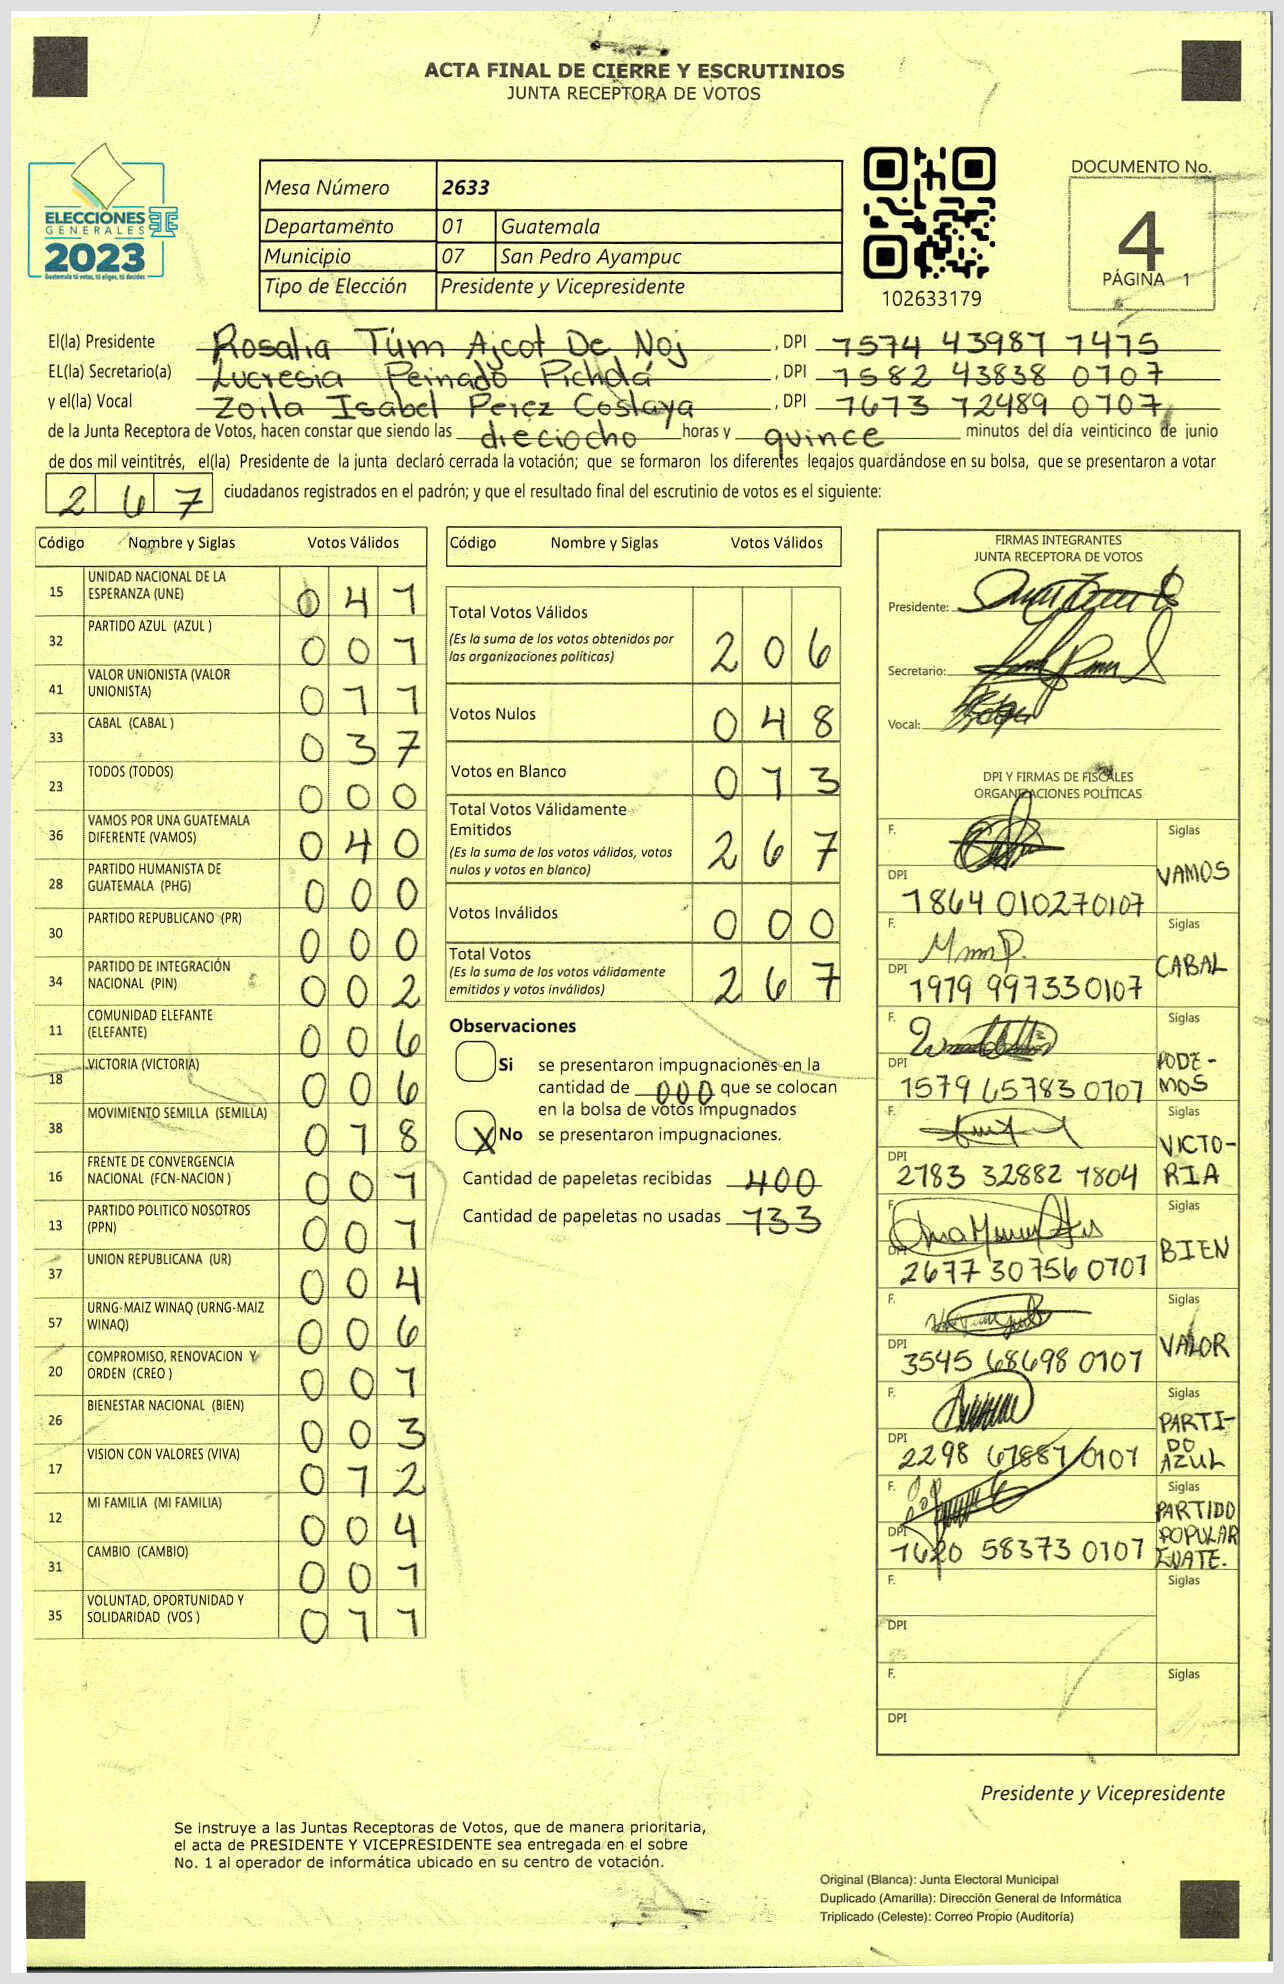 ACTA FINAL DE CIERRE Y ESCRUTINIOS
JUNTA RECEPTORA DE VOTOS
ELECCIONES
GENERALES
2023
Guatemala tú votas, tú eliges, tú decides
Mesa Número 2633
Departamento 01 Guatemala
Municipio 07 San Pedro Ayampuc
Tipo de Elección Presidente y Vicepresidente
102633179
DOCUMENTO No.
4
PÁGINA 1
El(la) Presidente Rosalia Túm Ajcot De Noj , DPI 1574 43987 1415
EL(la) Secretario(a) Lucresia Peinado Picholá , DPI 1582 43838 0107
y el(la) Vocal Zoila Isabel Perez Coslaya , DPI 1673 12489 0107
de la Junta Receptora de Votos, hacen constar que siendo las dieciocho horas y quince minutos del día veinticinco de junio
de dos mil veintitrés, el(la) Presidente de la junta declaró cerrada la votación; que se formaron los diferentes legajos guardándose en su bolsa, que se presentaron a votar
267 ciudadanos registrados en el padrón; y que el resultado final del escrutinio de votos es el siguiente:
Código Nombre y Siglas Votos Válidos
15 UNIDAD NACIONAL DE LA ESPERANZA (UNE) 041
32 PARTIDO AZUL (AZUL ) 001
41 VALOR UNIONISTA (VALOR UNIONISTA) 011
33 CABAL (CABAL ) 037
23 TODOS (TODOS) 000
36 VAMOS POR UNA GUATEMALA DIFERENTE (VAMOS) 040
28 PARTIDO HUMANISTA DE GUATEMALA (PHG) 000
30 PARTIDO REPUBLICANO (PR) 000
34 PARTIDO DE INTEGRACIÓN NACIONAL (PIN) 002
11 COMUNIDAD ELEFANTE (ELEFANTE) 006
18 VICTORIA (VICTORIA) 006
38 MOVIMIENTO SEMILLA (SEMILLA) 018
16 FRENTE DE CONVERGENCIA NACIONAL (FCN-NACION ) 001
13 PARTIDO POLITICO NOSOTROS (PPN) 001
37 UNION REPUBLICANA (UR) 004
57 URNG-MAIZ WINAQ (URNG-MAIZ WINAQ) 006
20 COMPROMISO, RENOVACION Y ORDEN (CREO ) 001
26 BIENESTAR NACIONAL (BIEN) 003
17 VISION CON VALORES (VIVA) 012
12 MI FAMILIA (MI FAMILIA) 004
31 CAMBIO (CAMBIO) 001
35 VOLUNTAD, OPORTUNIDAD Y SOLIDARIDAD (VOS ) 011
Código Nombre y Siglas Votos Válidos
Total Votos Válidos 206
(Es la suma de los votos obtenidos por
las organizaciones políticas)
Votos Nulos 048
Votos en Blanco 013
Total Votos Válidamente
Emitidos 267
(Es la suma de los votos válidos, votos
nulos y votos en blanco)
Votos Inválidos 000
Total Votos 267
(Es la suma de los votos válidamente
emitidos y votos inválidos)
Observaciones
Si se presentaron impugnaciones en la
cantidad de 000 que se colocan
en la bolsa de votos impugnados
X No se presentaron impugnaciones.
Cantidad de papeletas recibidas 400
Cantidad de papeletas no usadas 133
FIRMAS INTEGRANTES
JUNTA RECEPTORA DE VOTOS
Presidente:
Secretario:
Vocal:
DPI Y FIRMAS DE FISCALES
ORGANIZACIONES POLÍTICAS
F. Siglas
VAMOS
DPI 1864 01027 0107
F. Siglas
CABAL
DPI 1979 99733 0107
F. Siglas
PODE-
MOS
DPI 1579 65783 0101
F. Siglas
VICTO-
RIA
DPI 2183 32882 1804
F. Siglas
BIEN
DPI 2677 30756 0101
F. Siglas
VALOR
DPI 3545 68698 0101
F. Siglas
PARTI-
DO
AZUL
DPI 2298 67887 0101
F. Siglas
PARTIDO
POPULAR
GUATE.
DPI 1620 58373 0107
F. Siglas
DPI
F. Siglas
DPI
Presidente y Vicepresidente
Se instruye a las Juntas Receptoras de Votos, que de manera prioritaria,
el acta de PRESIDENTE Y VICEPRESIDENTE sea entregada en el sobre
No. 1 al operador de informática ubicado en su centro de votación.
Original (Blanca): Junta Electoral Municipal
Duplicado (Amarilla): Dirección General de Informática
Triplicado (Celeste): Correo Propio (Auditoría)